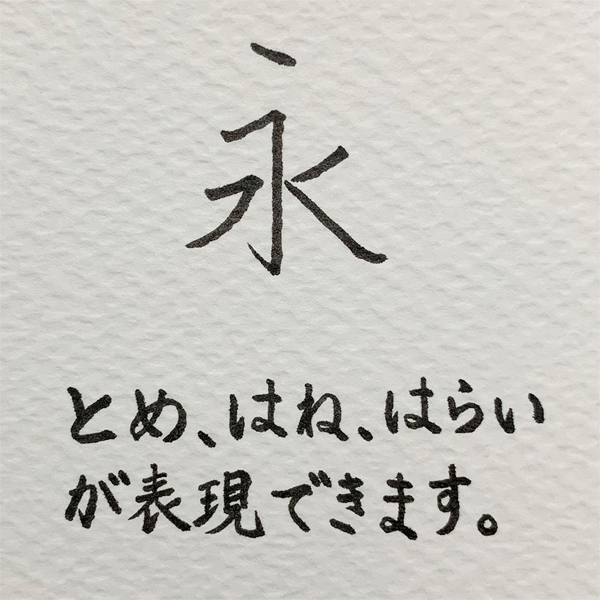 永
とめ、はね、はらい
が表現できます。